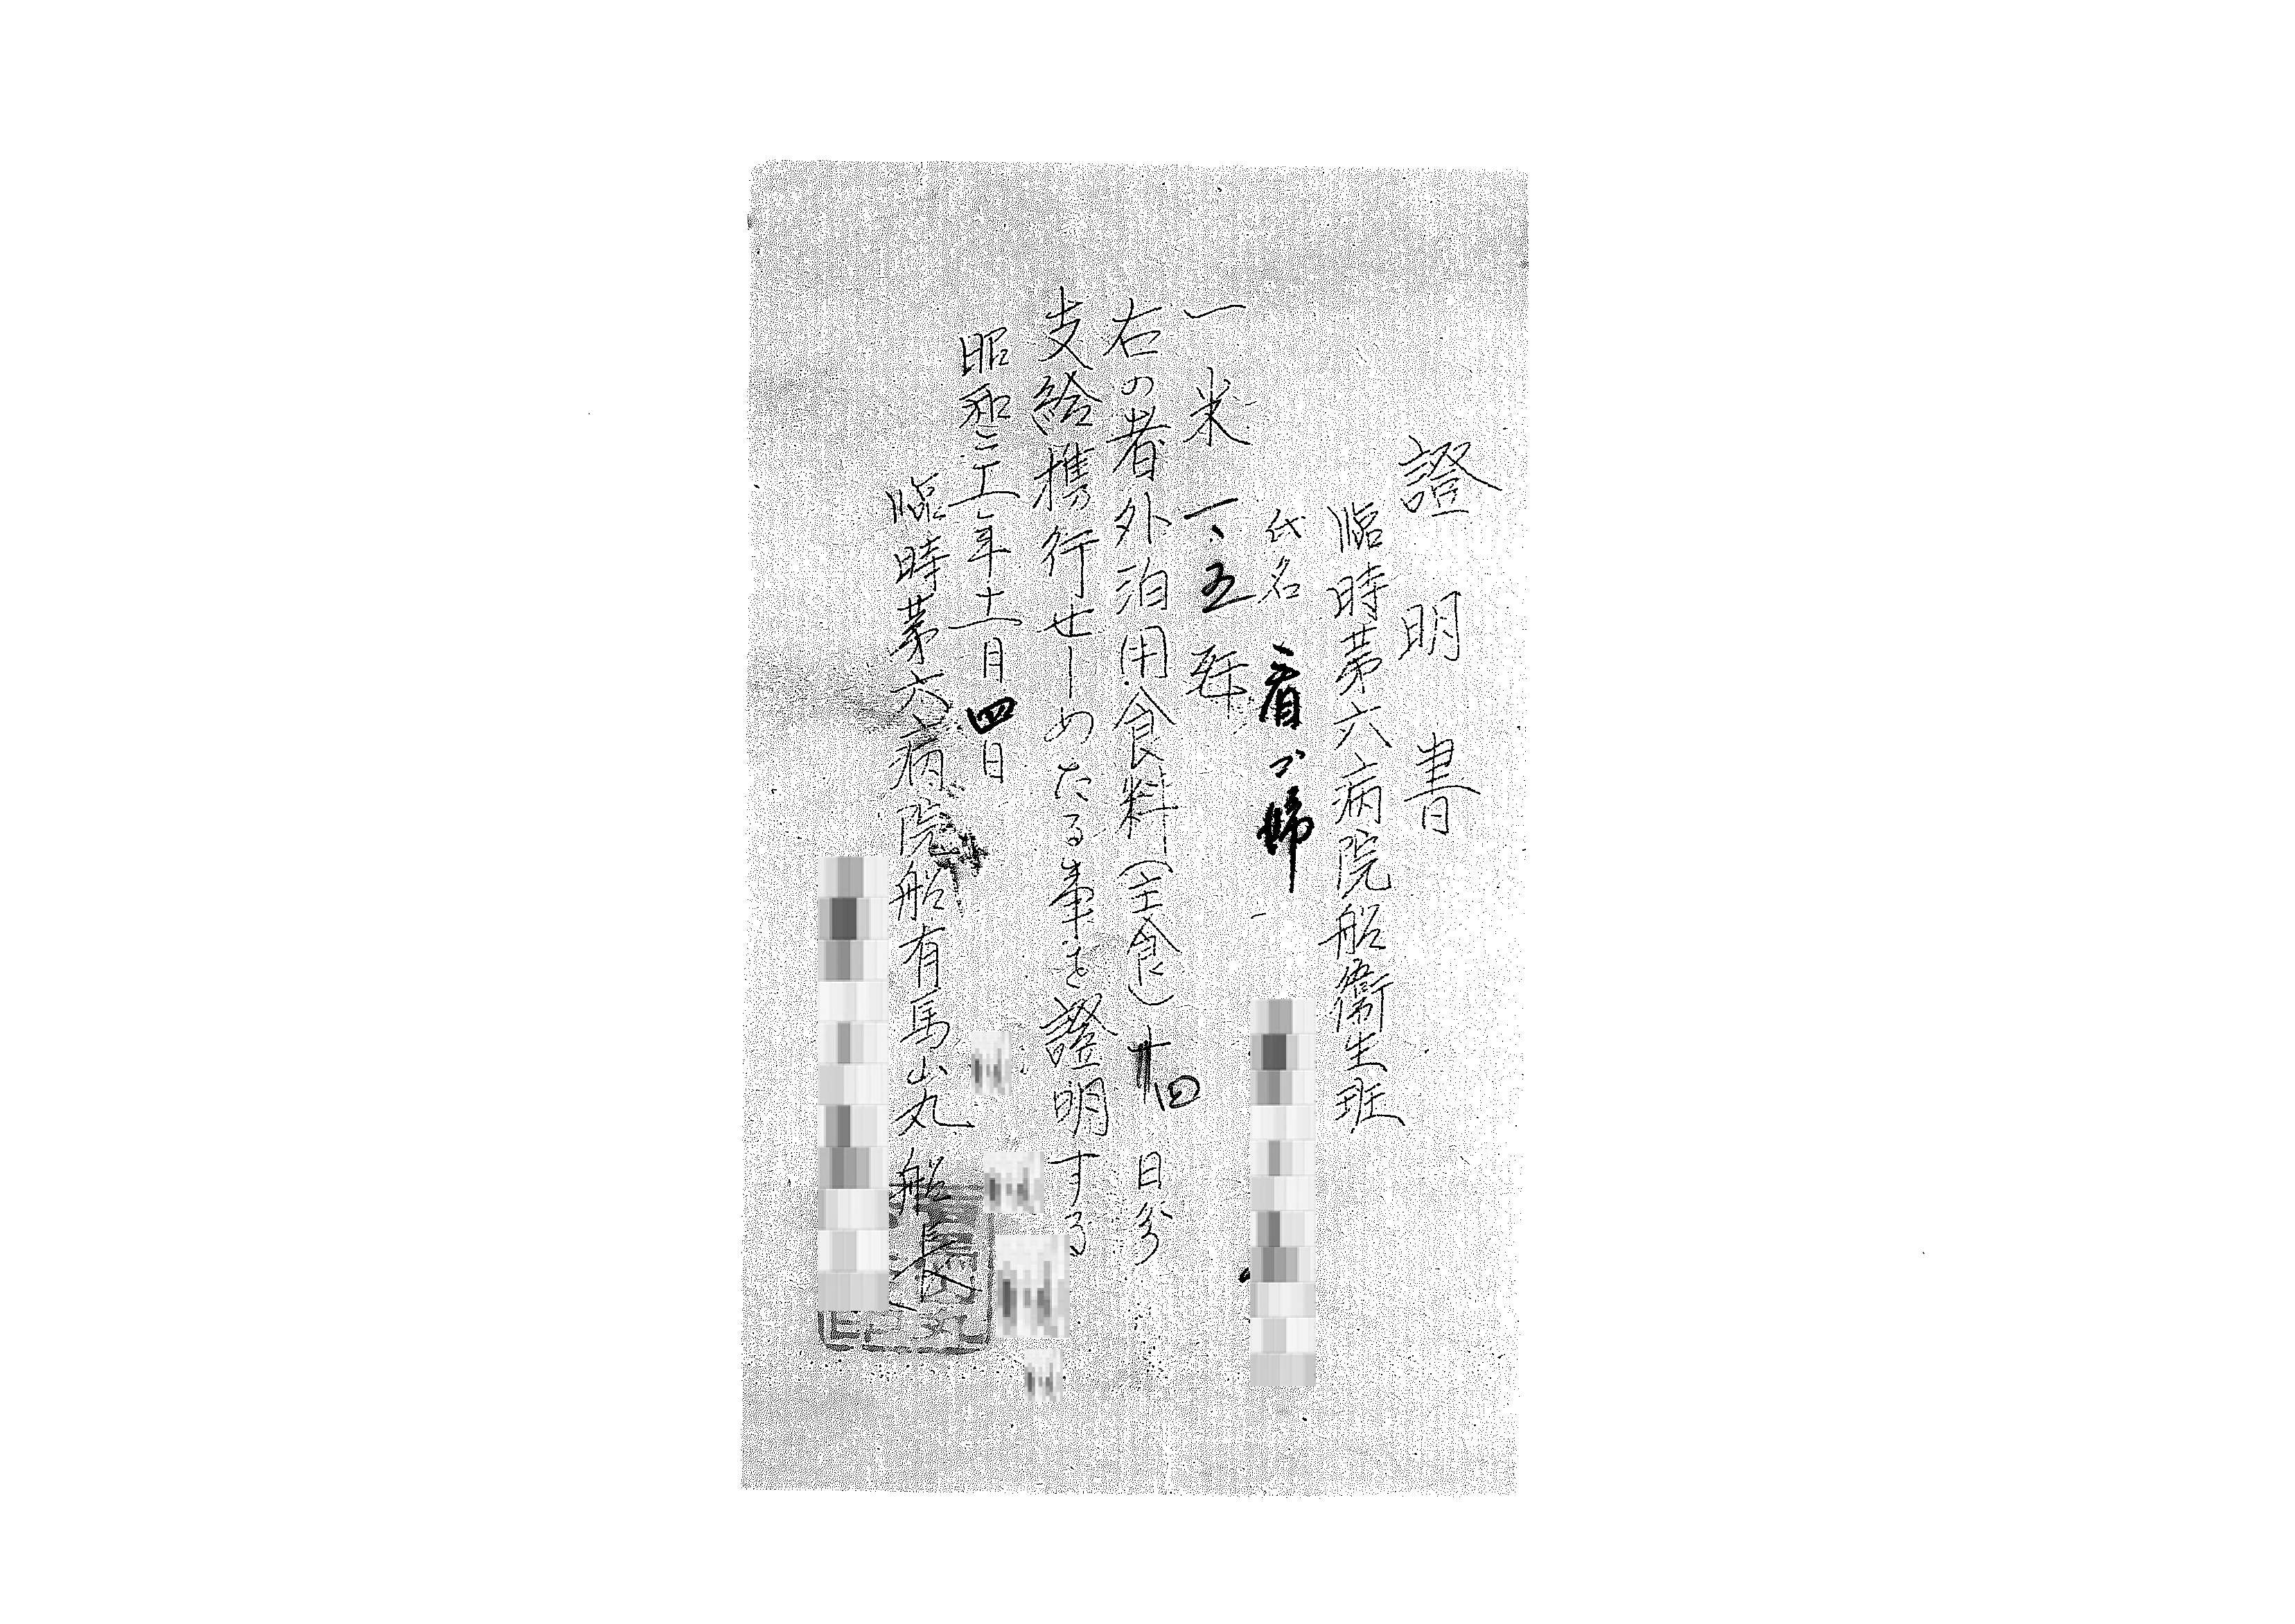 證明書
臨時第六病院船衛生班
氏名 看ゴ婦
一米 一、五瓩
右の者外泊用食料(主食)十四日分
支給携行せしめたる事を證明する
昭和二十一年十一月四日
臨時第六病院船有馬山丸船長